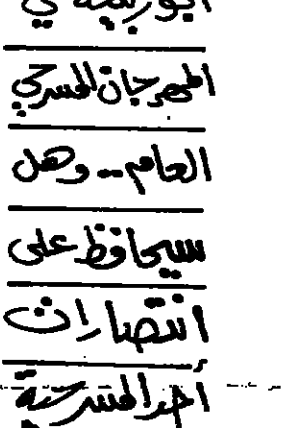 في
المهرجان المسرحي
العام .. وهل
سيحافظ على
انتصارات
المسرحية